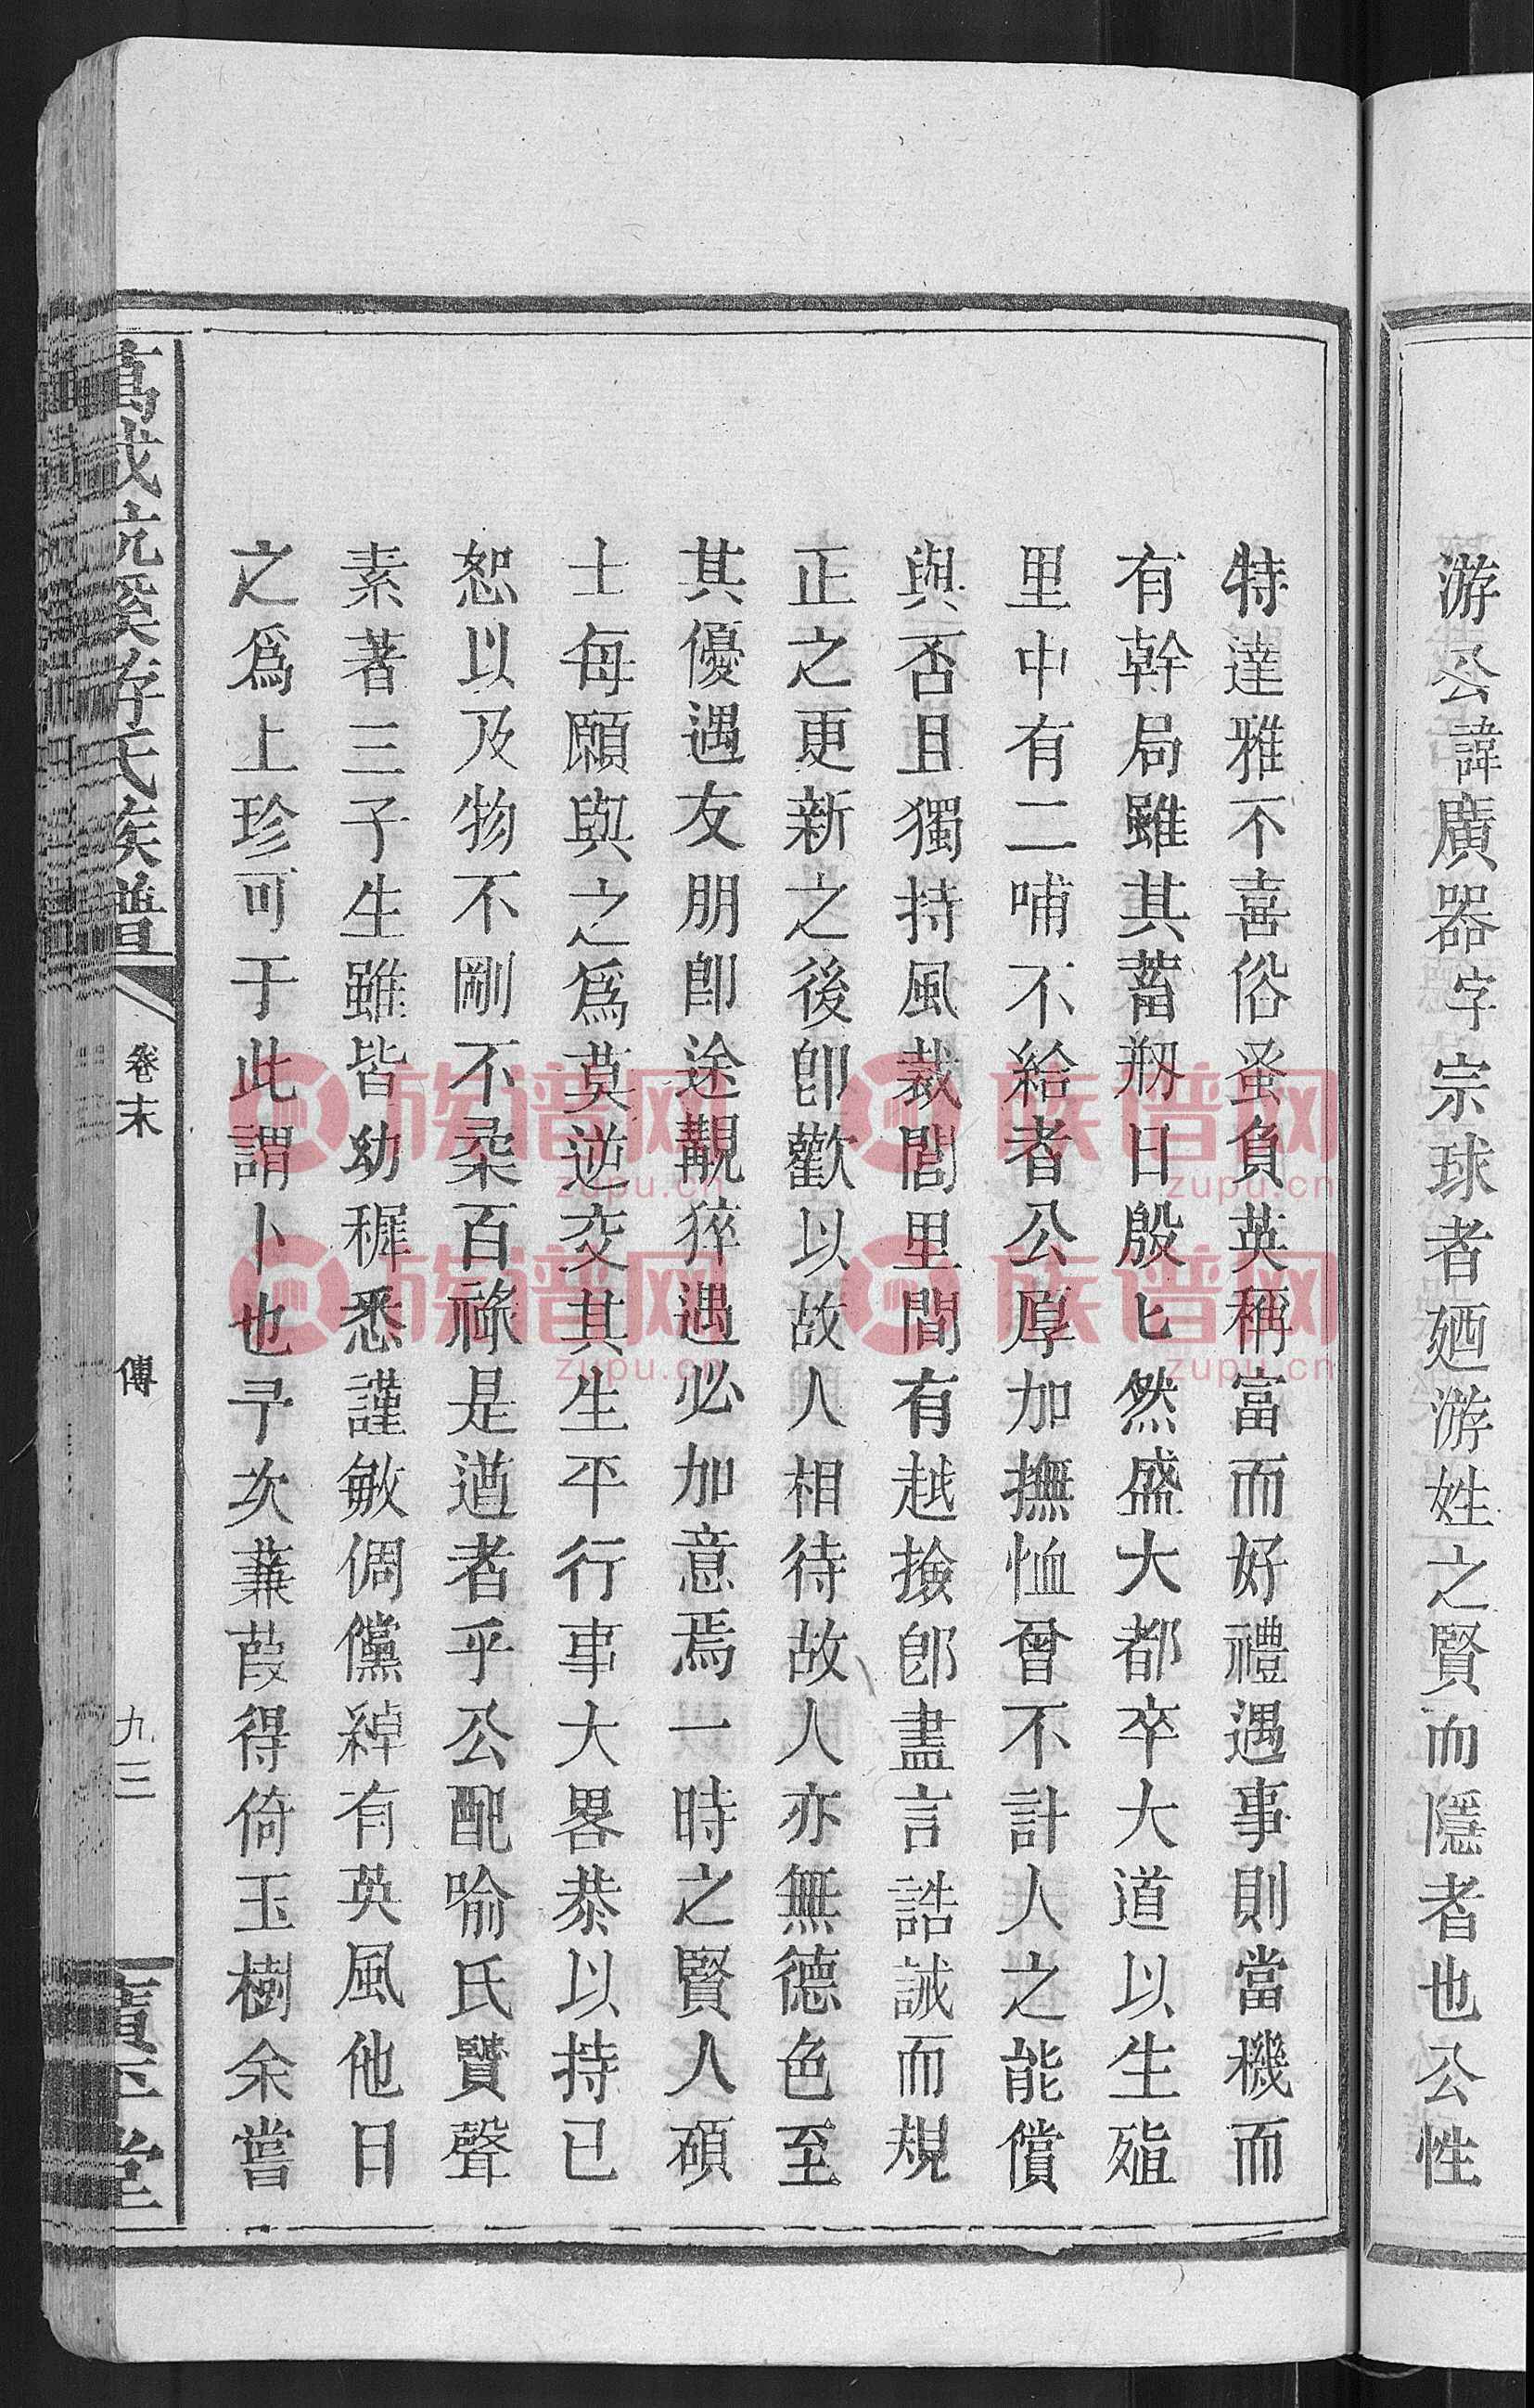 游公諱廣器字宗球者廼游姓之賢而隱者也公性
特達雅不喜俗蚤負英稱富而好禮遇事則當機而
有幹局雖其蓄刱日殷匕然盛大都卒大道以生殖
里中有二哺不給者公厚加撫恤曾不計人之能償
與否且獨持風裁閭里間有越撿卽盡言誥誡而規
正之更新之後卽歡以故人相待故人亦無德色至
其優遇友朋卽途覯猝遇必加意焉一時之賢人碩
士每願與之爲莫逆交其生平行事大畧恭以持已
恕以及物不剛不柔百祿是遒者乎公配喻氏賢聲
素著三子生雖皆幼穉悉謹敏倜儻綽有英風他日
之爲上珍可于此謂卜也予次蒹葭得倚玉樹余嘗
萬載 氏族譜
卷末
傳
九三
廣平堂
族谱网
zupu.cn
族谱网
zupu.cn
族谱网
zupu.cn
族谱网
zupu.cn